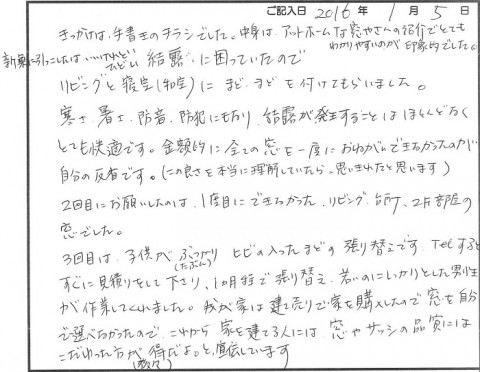 ご記入日 2016年 1月 5日
きっかけは、手書きのチラシでした。中身は、アットホームな窓やさんの紹介でとても
わかりやすいのが印象的でした。
新築に引っこしたは いいけれど ひどい 結露 に困っていたので
リビングと寝室(和室)に まどまどを付けてもらいました。
寒さ、暑さ、防音、防犯にもなり、結露が発生することはほとんどなく
とても快適です。金額的に全ての窓を一度におねがいできなかったのが
自分の反省です。(この良さを本当に理解していたら、思いきれたと思います)
2回目にお願いしたのは、1度目にできなかった、リビング、台所、2F部屋の
窓でした。
3回目は、子供が ぶつかり(たぶん) ヒビの入ったまどの張り替えです。Telすると
すぐに見積りをして下さり、1ヵ月程で張り替え、若いのにしっかりとした男性
が作業してくれました。我が家は建て売りで家を購入したので窓を自分
で選べなかったので、これから家を建てる人には、窓やサッシの品質には
こだわった方が(数々)得だよ。と、宣伝しています